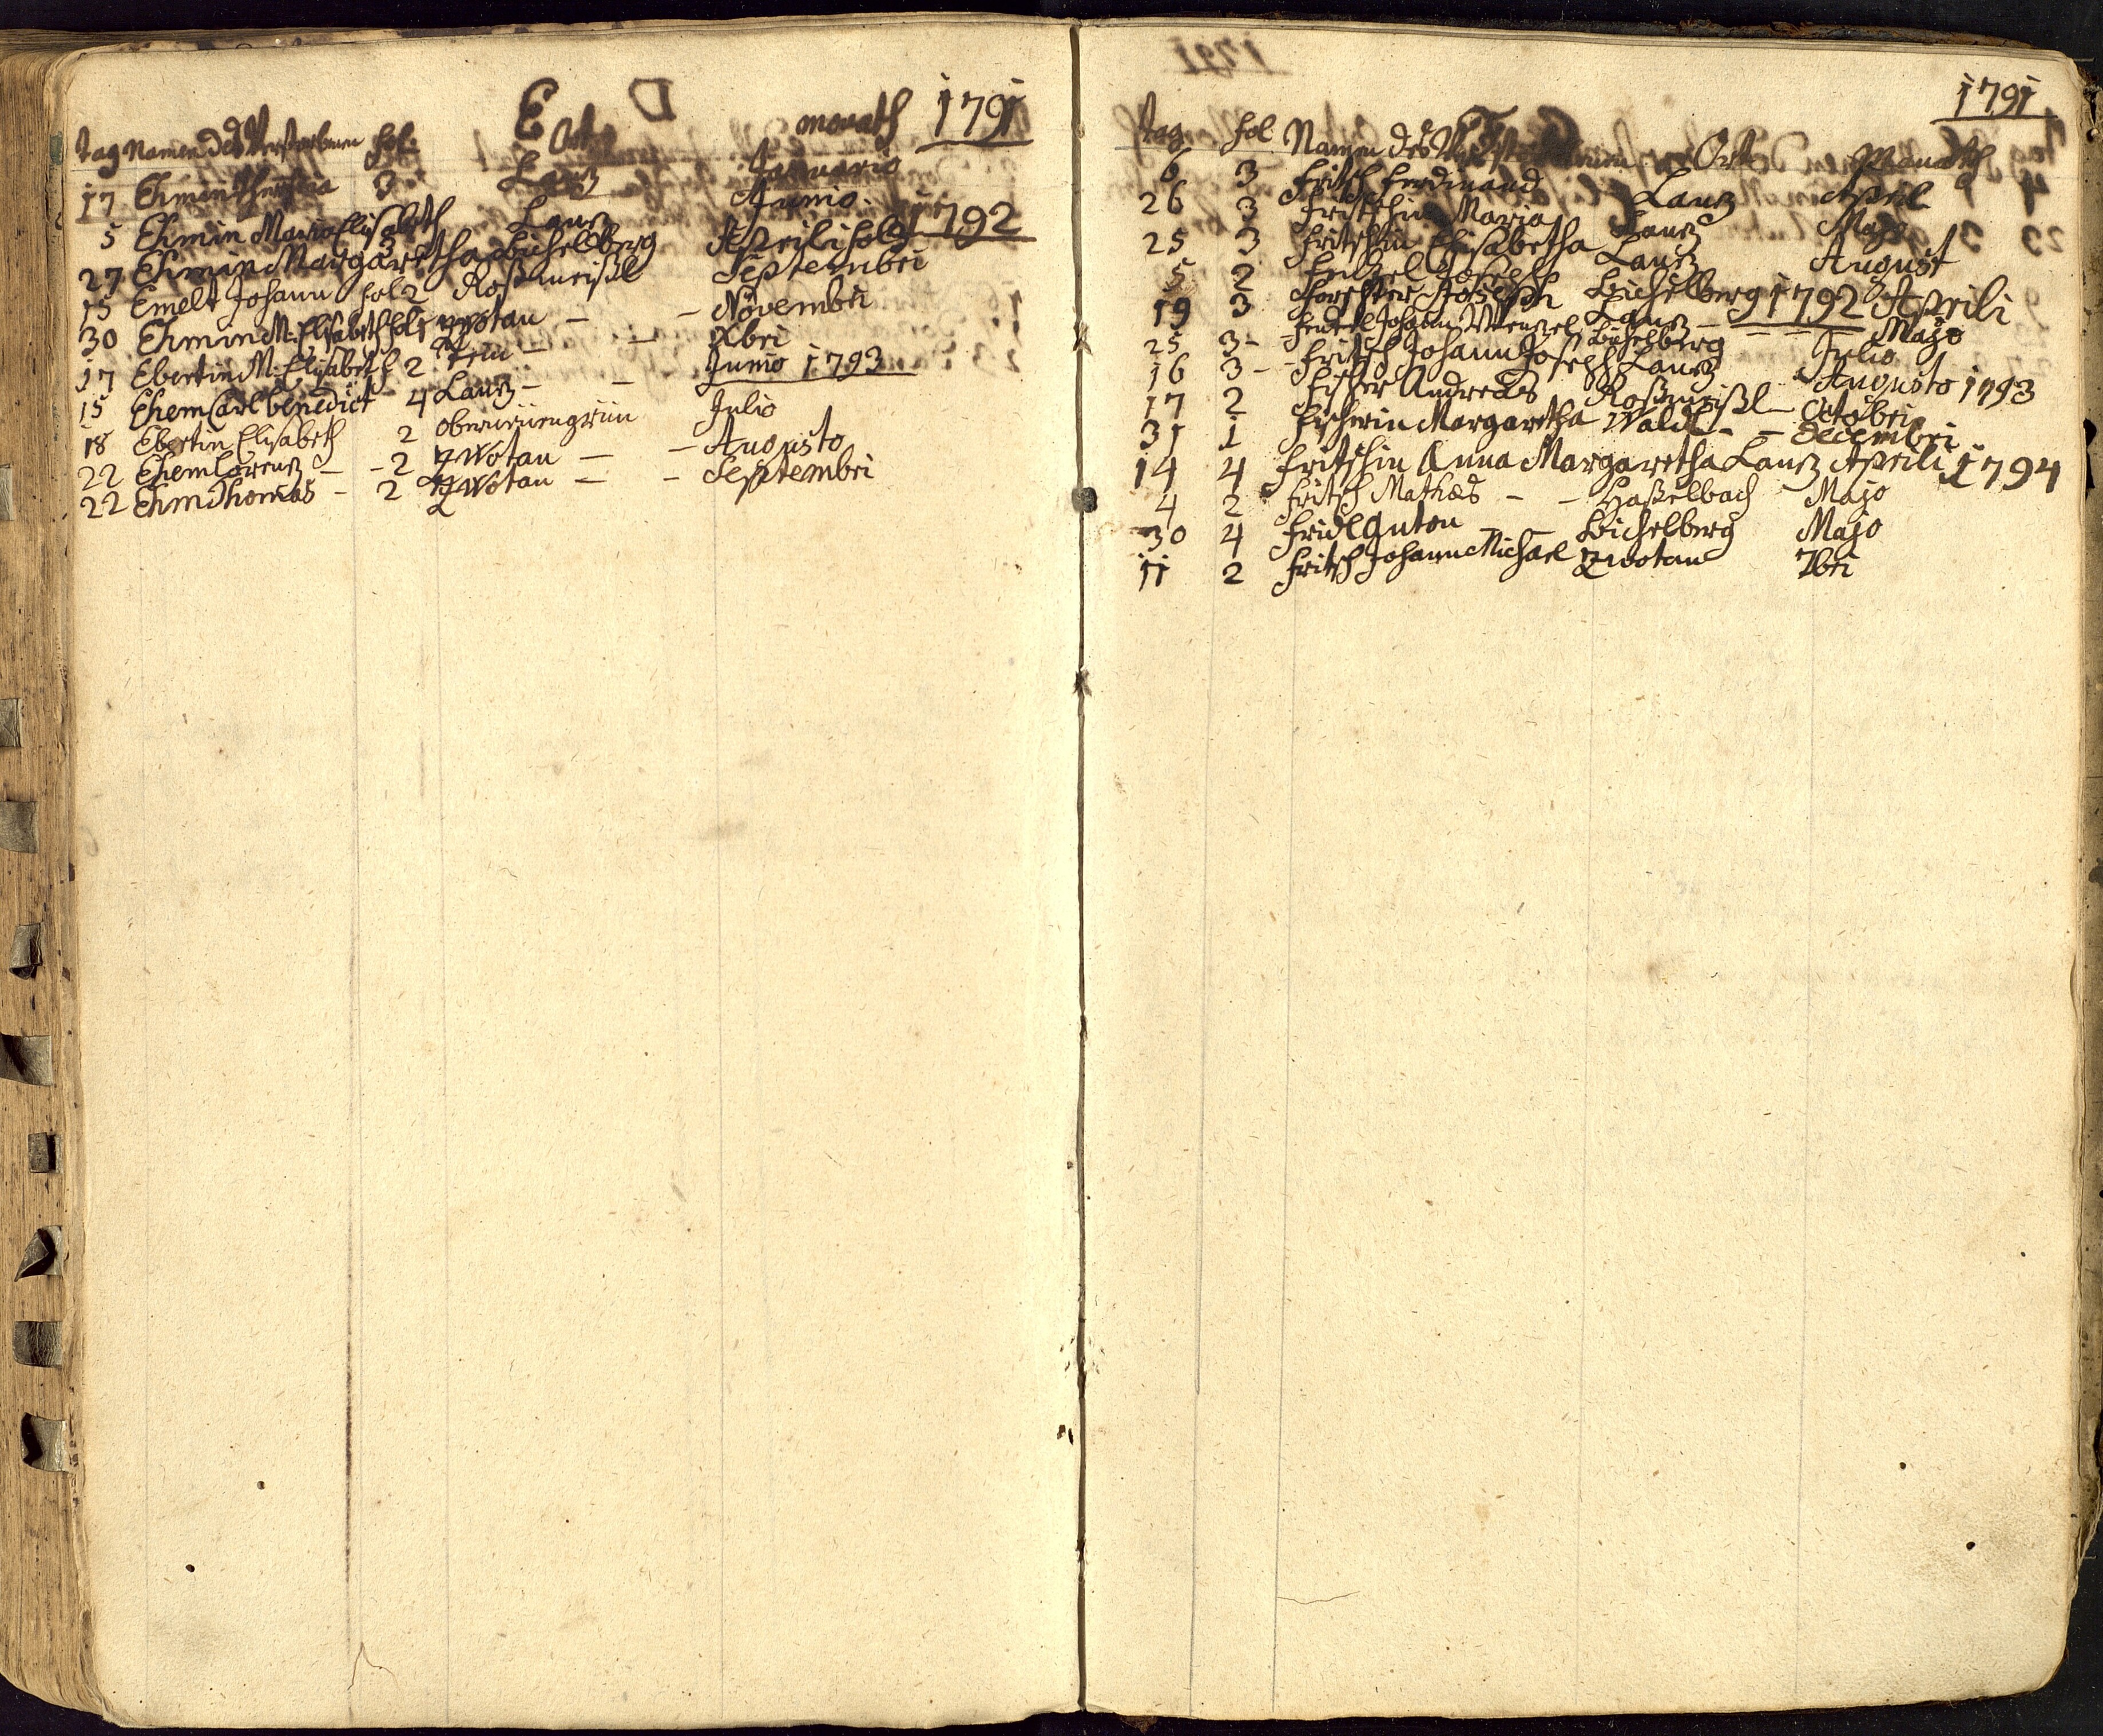 E
tag Namen des Verstorbenen fol: Ort monath 1791
17 Ehmin Theresia 3 Lanz Januario
5 Ehmin Maria Elisabeth Lanz Junio. 1792
27 Ehmin Margaretha Bichelberg Aprili fol 3
15 Emelt Johann fol 2 Roßmeißl Septembri
30 Ehmin M: Elisabeth fol 1 Zwotau — – Novembri
17 Ebertin M: Elisabeth 2 — — Xbri
15 Ehem Carl benedict 4 Lanz – – Junio 1793
18 Ebertin Elisabeth 2 oberneuengrün Julio
22 Ehem Lorenz – – 2 Zwotau — – Augusto
22 Ehm Thomas – 2 Zwotau — – Septembri
1791
tag fol Namen des Verstorbenen Ort Monath
6 3 Fritsch Ferdinand Lanz April
26 3 Fritschin Maria Lanz Majo
25 3 Fritschin Elisabetha Lanz August
5 2 Joseph Bichelberg 1792 Aprili
19 3 Forschter Joseph Lanz – — — Majo
25 3 – Johann Wenzel Bichelberg Julio
16 3 – – Fritsch Johann Joseph Lanz Augusto 1793
17 2 Fischer Andreas Roßmeißl – Octobri
31 1 Fischerin Margaretha Waldl – – Decembri
14 4 Fritschin Anna Margaretha Lanz Aprili 1794
4 2 Fritsch Mathes – – Haßelbach Majo
30 4 Fridl Anton — — Bichelberg Majo
11 2 Fritsch Johann Michael Zwotau 7bri